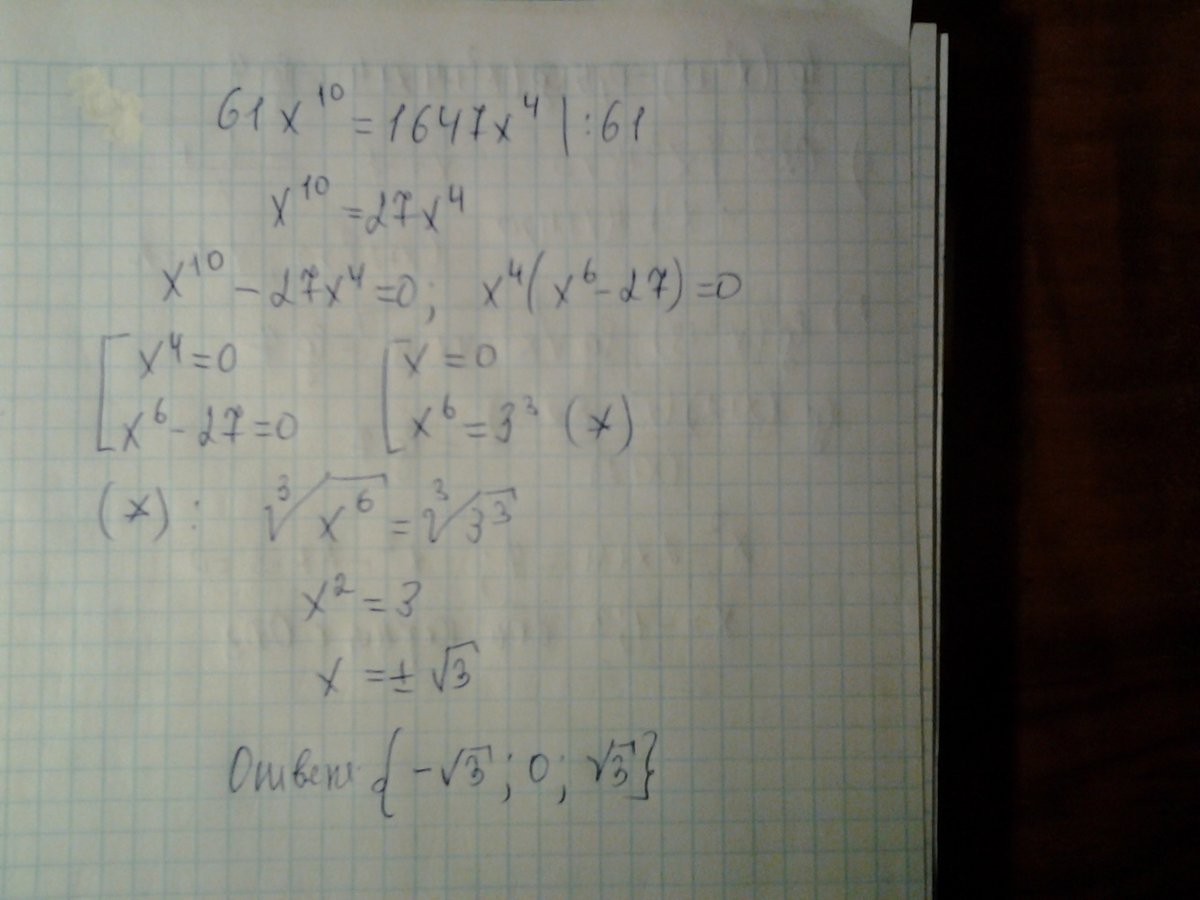 61x¹⁰ = 1647x⁴ | : 61
x¹⁰ = 27x⁴
x¹⁰ - 27x⁴ = 0; x⁴(x⁶ - 27) = 0
[ x⁴ = 0 [ x = 0
x⁶ - 27 = 0 x⁶ = 3³ (*)
(*): ³√x⁶ = ³√3³
x² = 3
x = ± √3
Ответ {-√3; 0; √3}